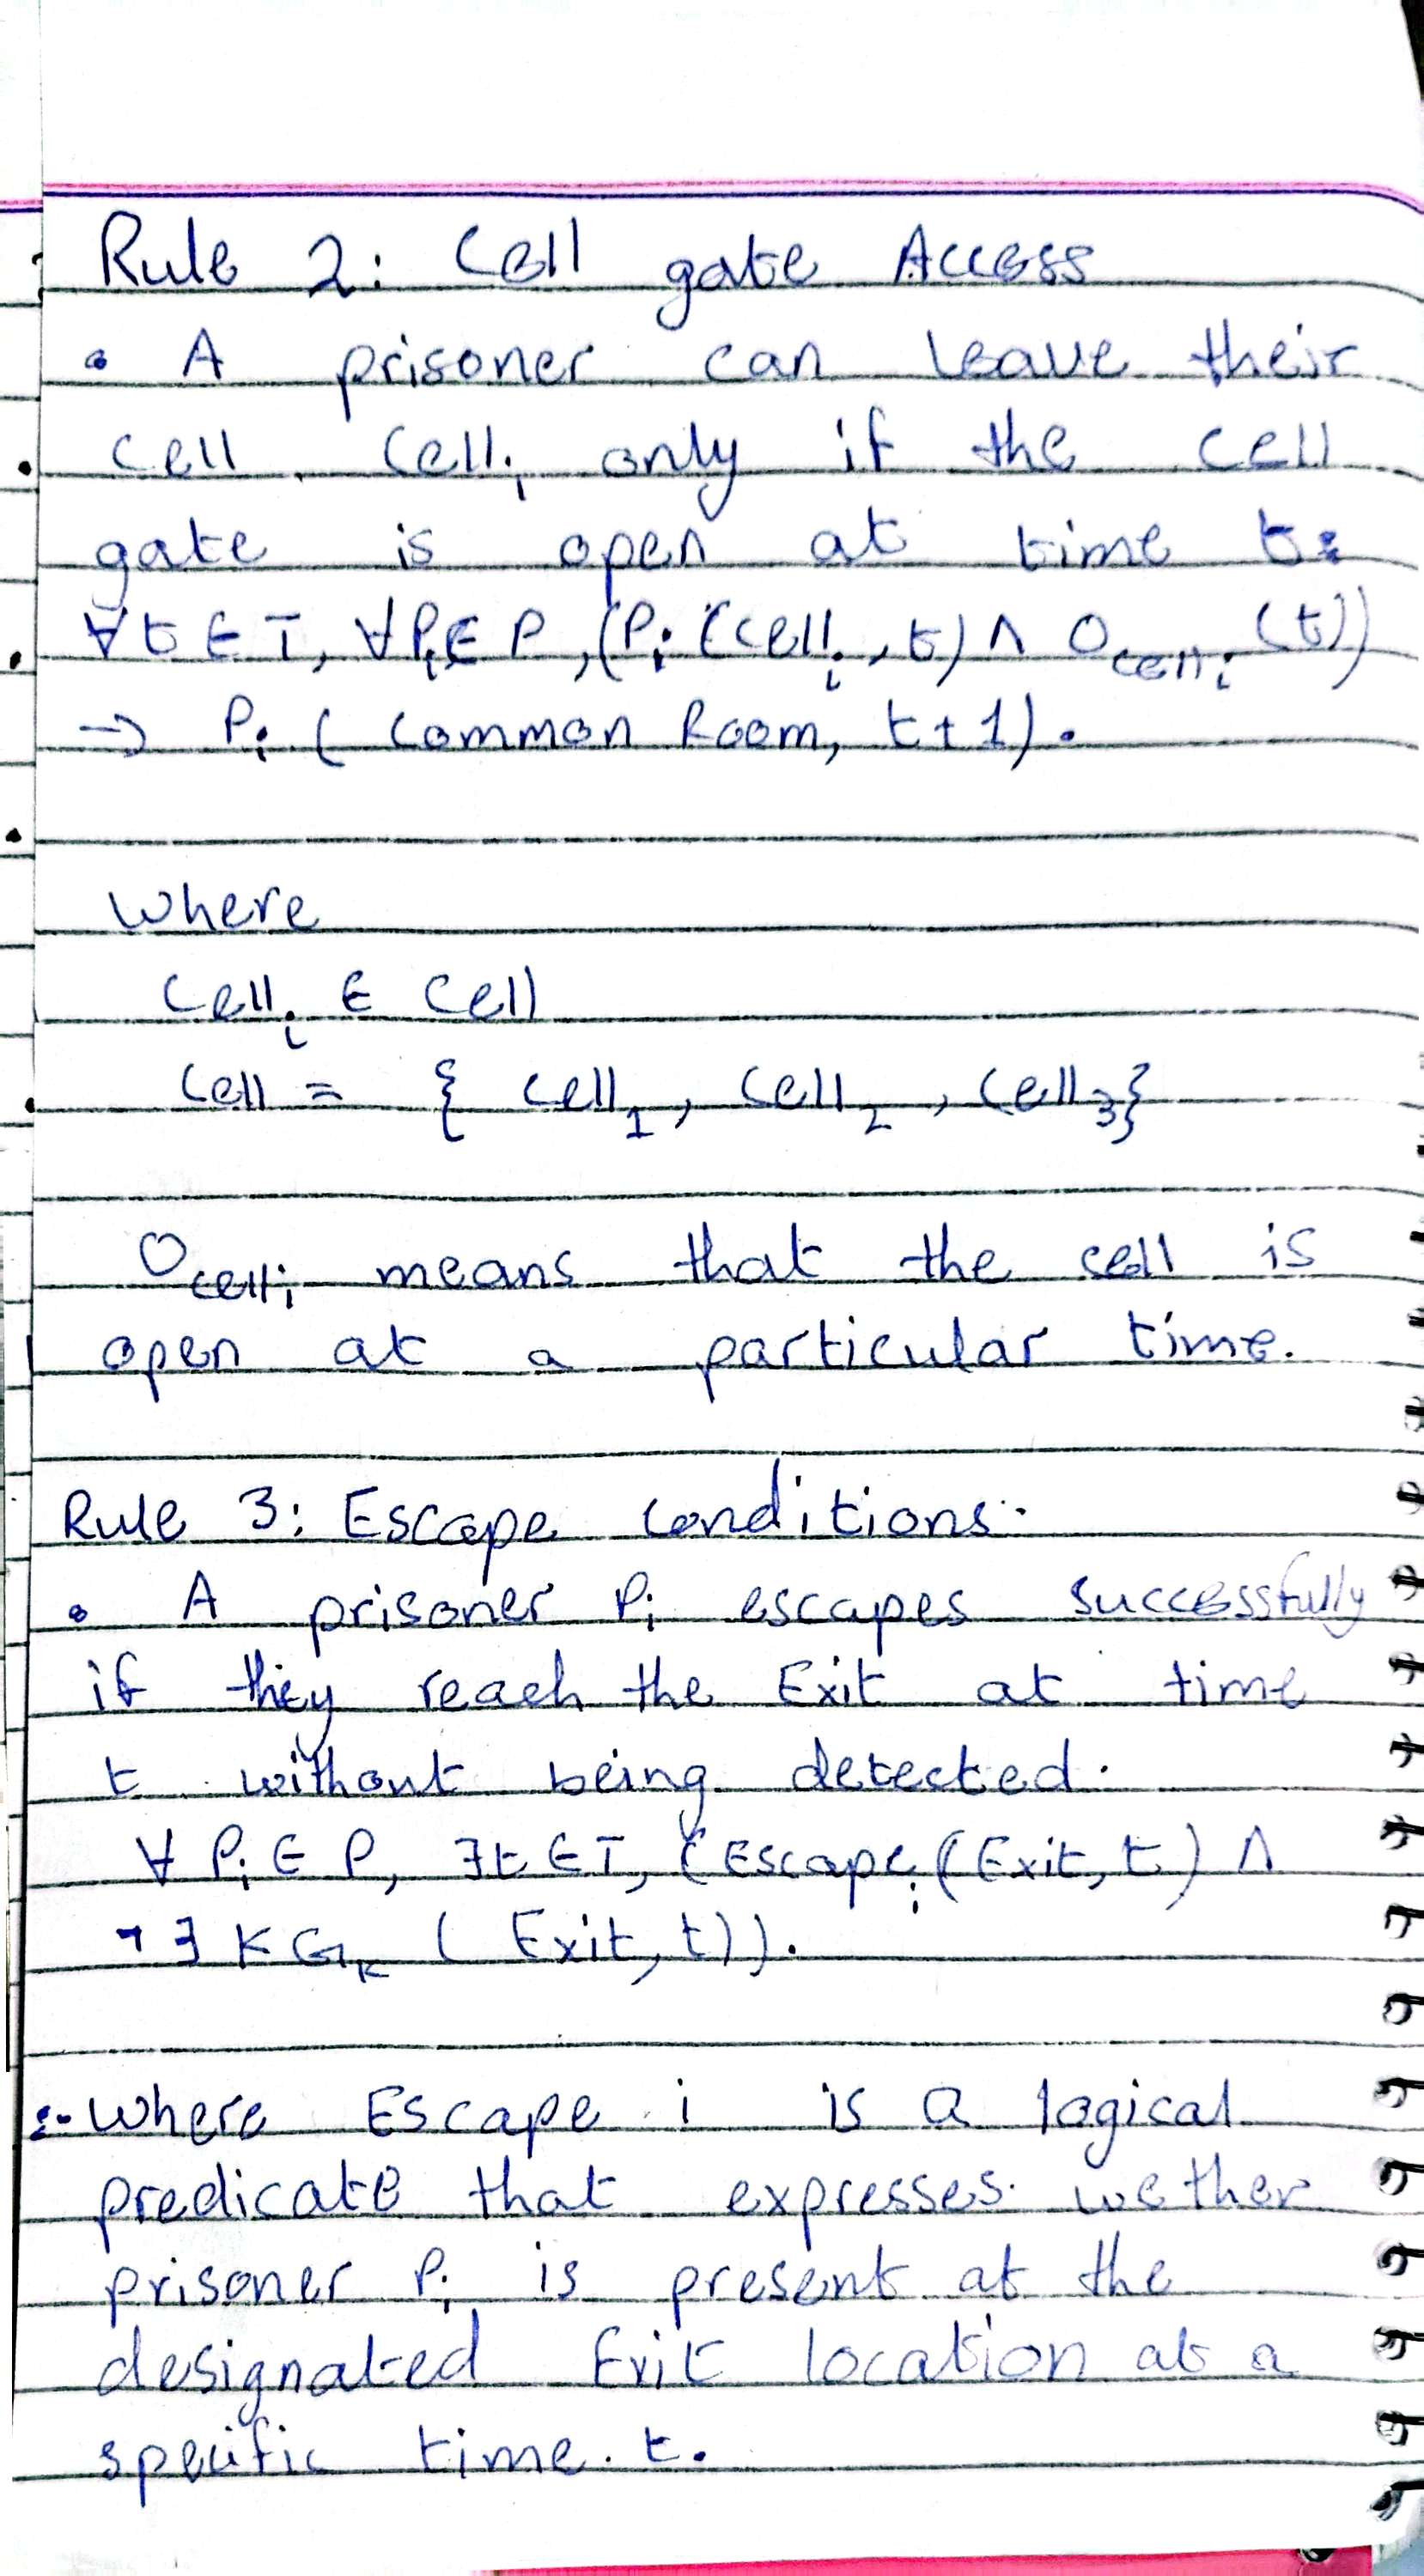 Rule 2: Cell gate Access
• A prisoner can leave their
cell Cellᵢ only if the cell
gate is open at time t:
∀t ∈ T, ∀Pᵢ ∈ P, (Pᵢ (Cellᵢ, t) ∧ O_cellᵢ (t))
→ Pᵢ ( Common Room, t+1).
Where
Cellᵢ ∈ Cell
Cell = { Cell₁, Cell₂, Cell₃}
O_cellᵢ means that the cell is
open at a particular time.
Rule 3: Escape Conditions:
• A prisoner Pᵢ escapes successfully
if they reach the Exit at time
t without being detected.
∀ Pᵢ ∈ P, ∃t ∈ T, (Escapeᵢ (Exit, t) ∧
¬∃ K Gₖ ( Exit, t)).
:- Where Escape i is a logical
predicate that expresses wether
prisoner Pᵢ is present at the
designated Exit location at a
specific time t.